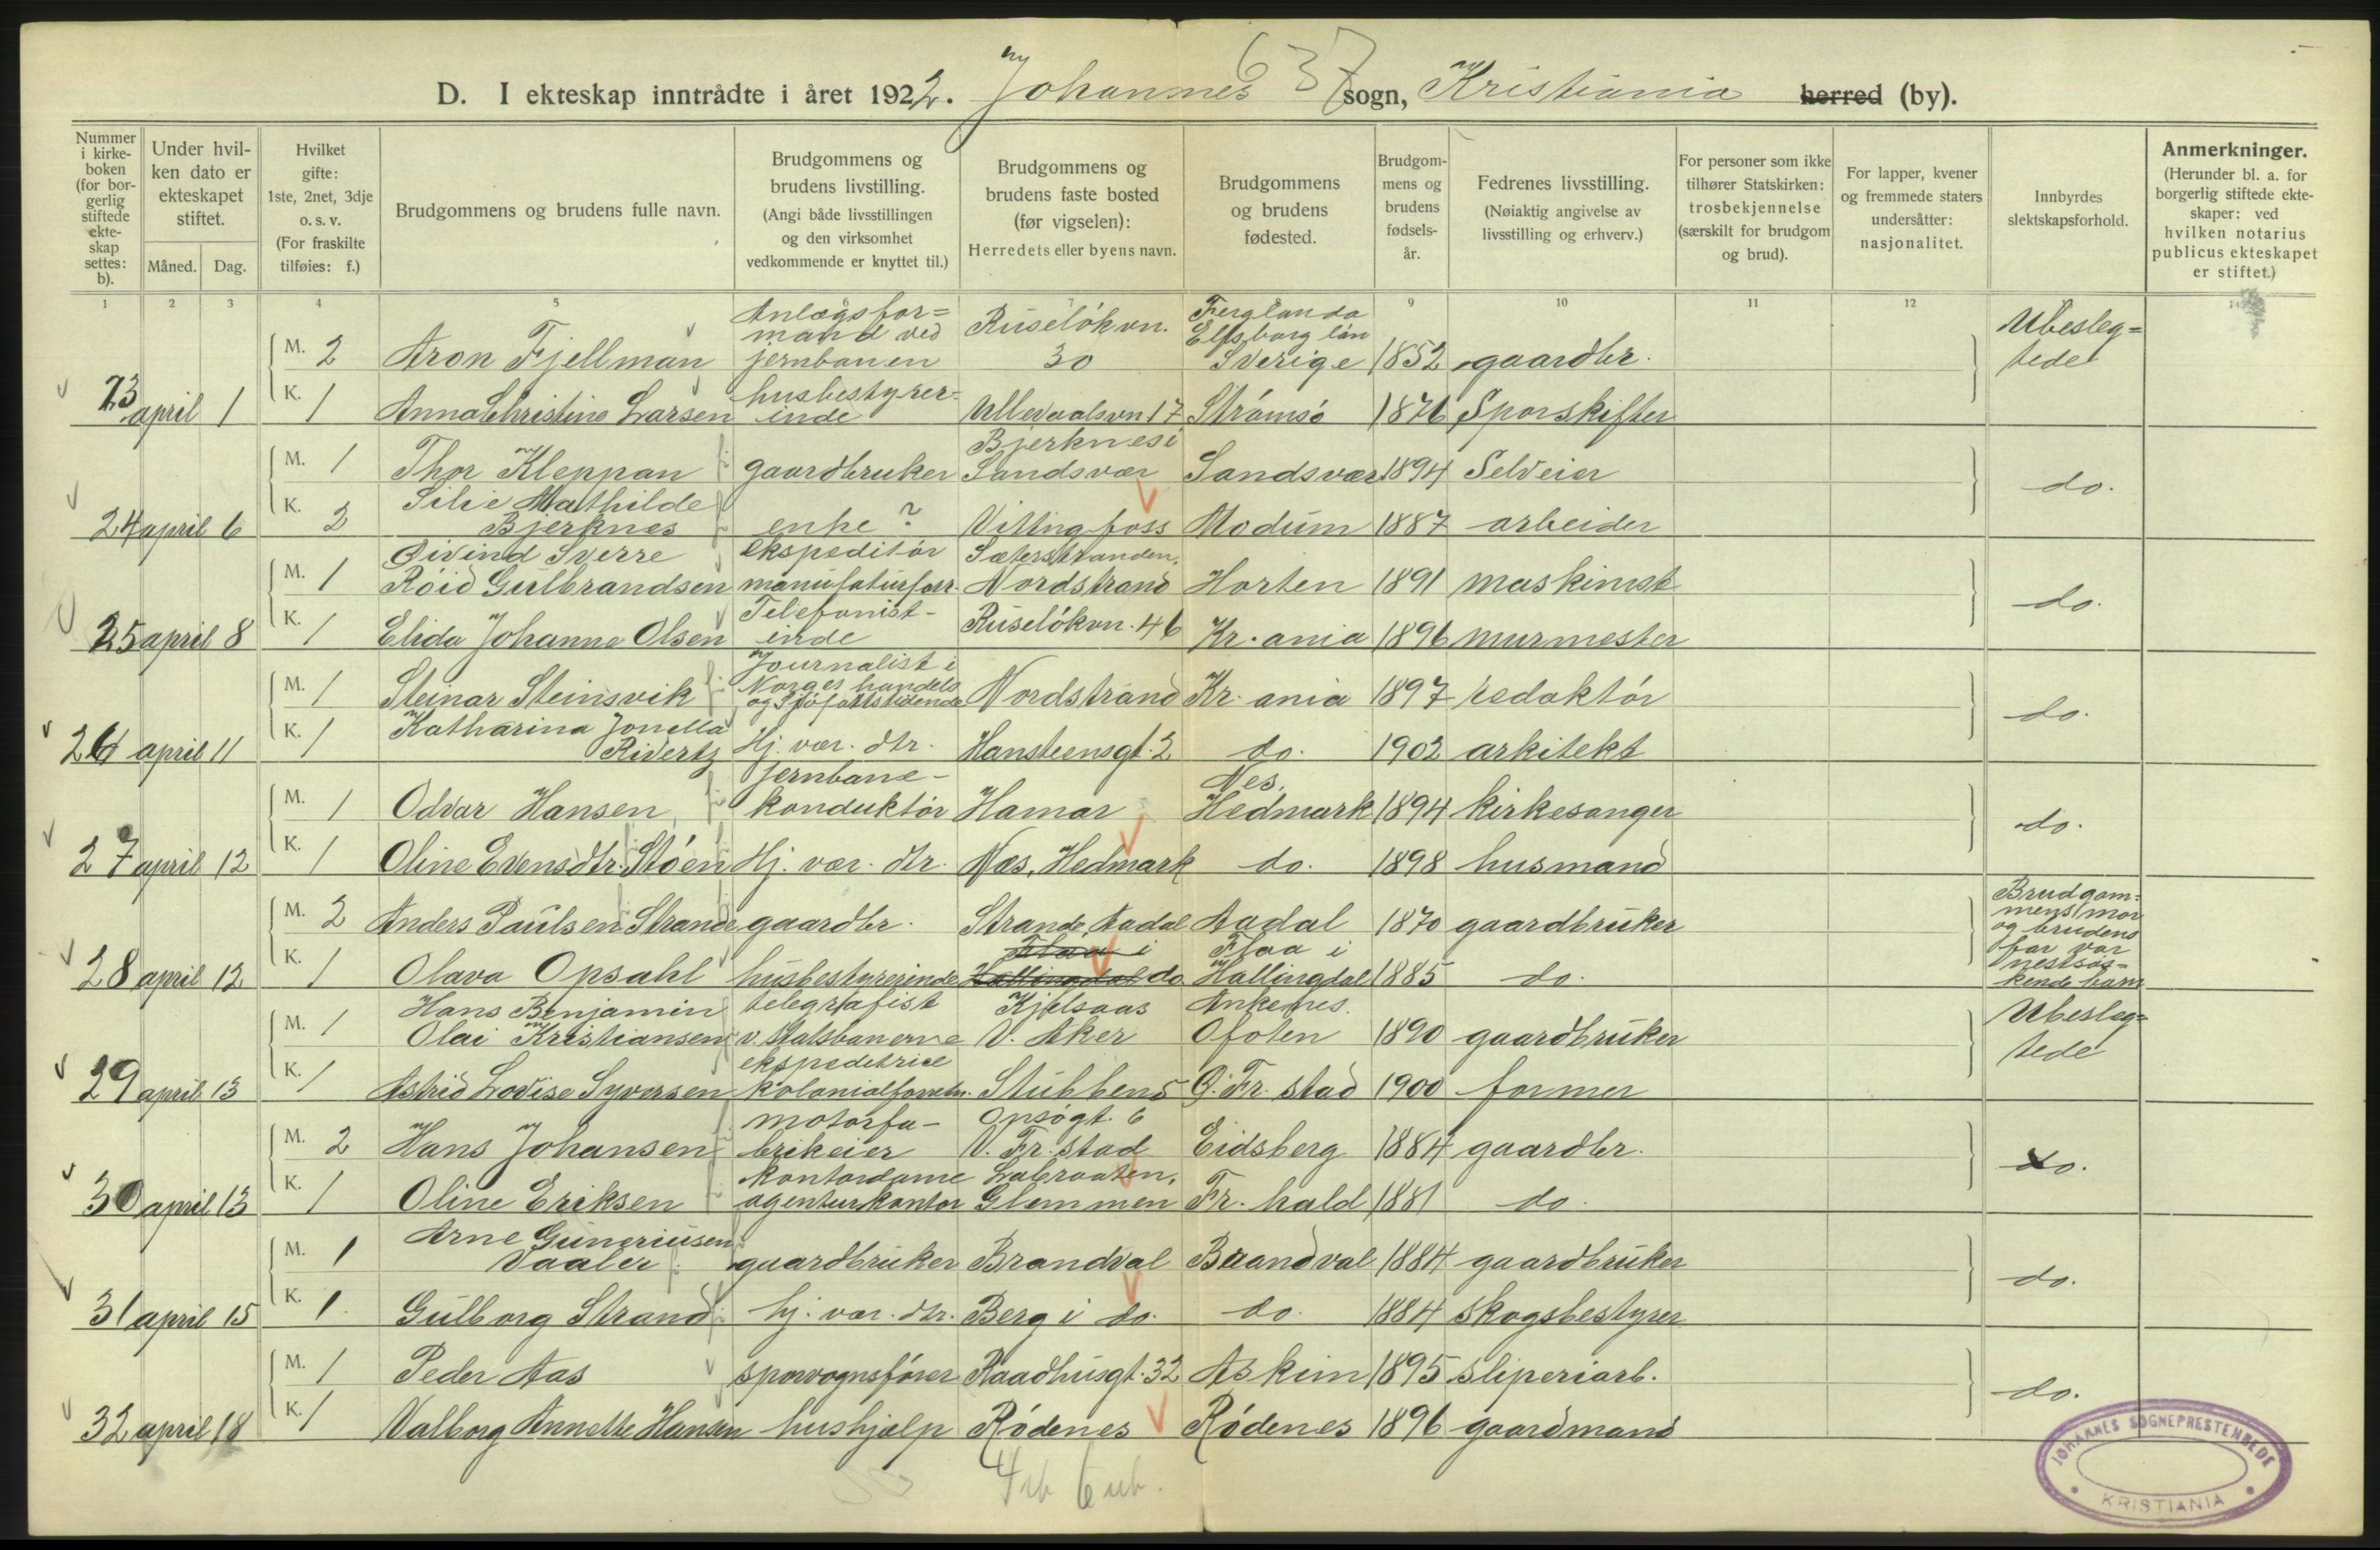 637
D. I ekteskap inntrådte i året 1922. Johannes sogn, Kristiania herred (by).
Nummer i kirke- boken (for bor- gerlig stiftede ekte- skap settes: b).
Under hvil- ken dato er ekteskapet stiftet.
Måned. Dag.
Hvilket gifte: 1ste, 2net, 3dje o. s. v. (For fraskilte tilføies: f.)
Brudgommens og brudens fulle navn.
Brudgommens og brudens livstilling. (Angi både livsstillingen og den virksomhet vedkommende er knyttet til.)
Brudgommens og brudens faste bosted (før vigselen): Herredets eller byens navn.
Brudgommens og brudens fødested.
Brudgom- mens og brudens fødsels- år.
Fedrenes livsstilling. (Nøiaktig angivelse av livsstilling og erhverv.)
For personer som ikke tilhører Statskirken: trosbekjennelse (særskilt for brudgom og brud).
For lapper, kvener og fremmede staters undersåtter: nasjonalitet.
Innbyrdes slektskapsforhold.
Anmerkninger. (Herunder bl. a. for borgerlig stiftede ekte- skaper: ved hvilken notarius publicus ekteskapet er stiftet.)
1 2 3 4 5 7 9 10 11 12
M. 2 Aron Fjellman Anlægsfor= mand ved jernbanen Ruseløkvn. 30 Ferglanda Elfsborg län Sverige 1852 gaardbr. Ubesleg= tede
23 april 1 K. 1 Anna Christine Larsen husbestyrer- inde Ullevaalsvn 17 Strømsø 1876 Sporskifter
M. 1 Thor Kleppan gaardbruker Bjerknes i Sandsvær Sandsvær 1894 Selveier do.
24 april 6 K. 2 Silie Mathilde Bjerknes enke ? Vittingfoss Modum 1887 arbeider
M. 1 Øivind Sverre Róid Gulbrandsen ekspeditør manufakturforr. Sæterstranden, Nordstrand Horten 1891 maskinist do.
25 april 8 K. 1 Elida Johanne Olsen Telefonist- inde Ruseløkvn. 46 Kr.ania 1896 murmester
M. 1 Steinar Steinsvik Journalist i Norges handels og Sjøfartstidende Nordstrand Kr.ania 1897 redaktør do.
26 april 11 K. 1 Katharina Jonella Rivertz Hj. vær. dtr. Hansteensgt. 2 do. 1902 arkitekt
M. 1 Odvar Hansen jernbane- konduktør Hamar Nes, Hedmark 1894 kirkesanger do.
27 april 12 K. 1 Oline Evensdtr. Støen Hj. vær. dtr. Nes, Hedmark do. 1898 husmand
M. 2 Anders Paulsen Strande gaardbr. Strande, Aadal Aadal 1870 gaardbruker Brudgom= mens mor og brudens far var nestsøs- kendebarn
28 april 12 K. 1 Olava Opsahl husbestyrerinde Flaa i Hallingdal do Flaa i Hallingdal 1885 do.
M. 1 Hans Benjamin Olai Kristiansen telegrafist v. Statsbanerne Kjelsaas V. Aker Ankenes. Ofoten 1890 gaardbruker Ubesleg= tede
29 april 13 K. 1 Astrid Lovise Syversen ekspeditrice kolonialforretn. Stubben 5 G. Fr. stad 1900 former
M. 2 Hans Johansen motorfa- brikeier Opsøgt. 6 V. Fr. stad Eidsberg 1884 gaardbr. do.
30 april 13 K. 1 Oline Eriksen kontordame agenturkontor Labraaten, Glemmen Fr. hald 1881 do.
M. 1 Arne Guneriusen Vaaler gaardbruker Brandval Brandval 1884 gaardbruker do.
31 april 15 K. 1 Gulborg Strand hj. vær. dtr. Berg i do. do. 1884 skogsbestyrer
M. 1 Peder Aas sporvognsfører Raadhusgt. 32 Askim 1895 sliperiarb. do.
32 april 18 K. 1 Valborg Annette Hansen hushjælp Rødenes Rødenes 1896 gaardmand
JOHANNES SOGNEPRESTEMBEDE
KRISTIANIA